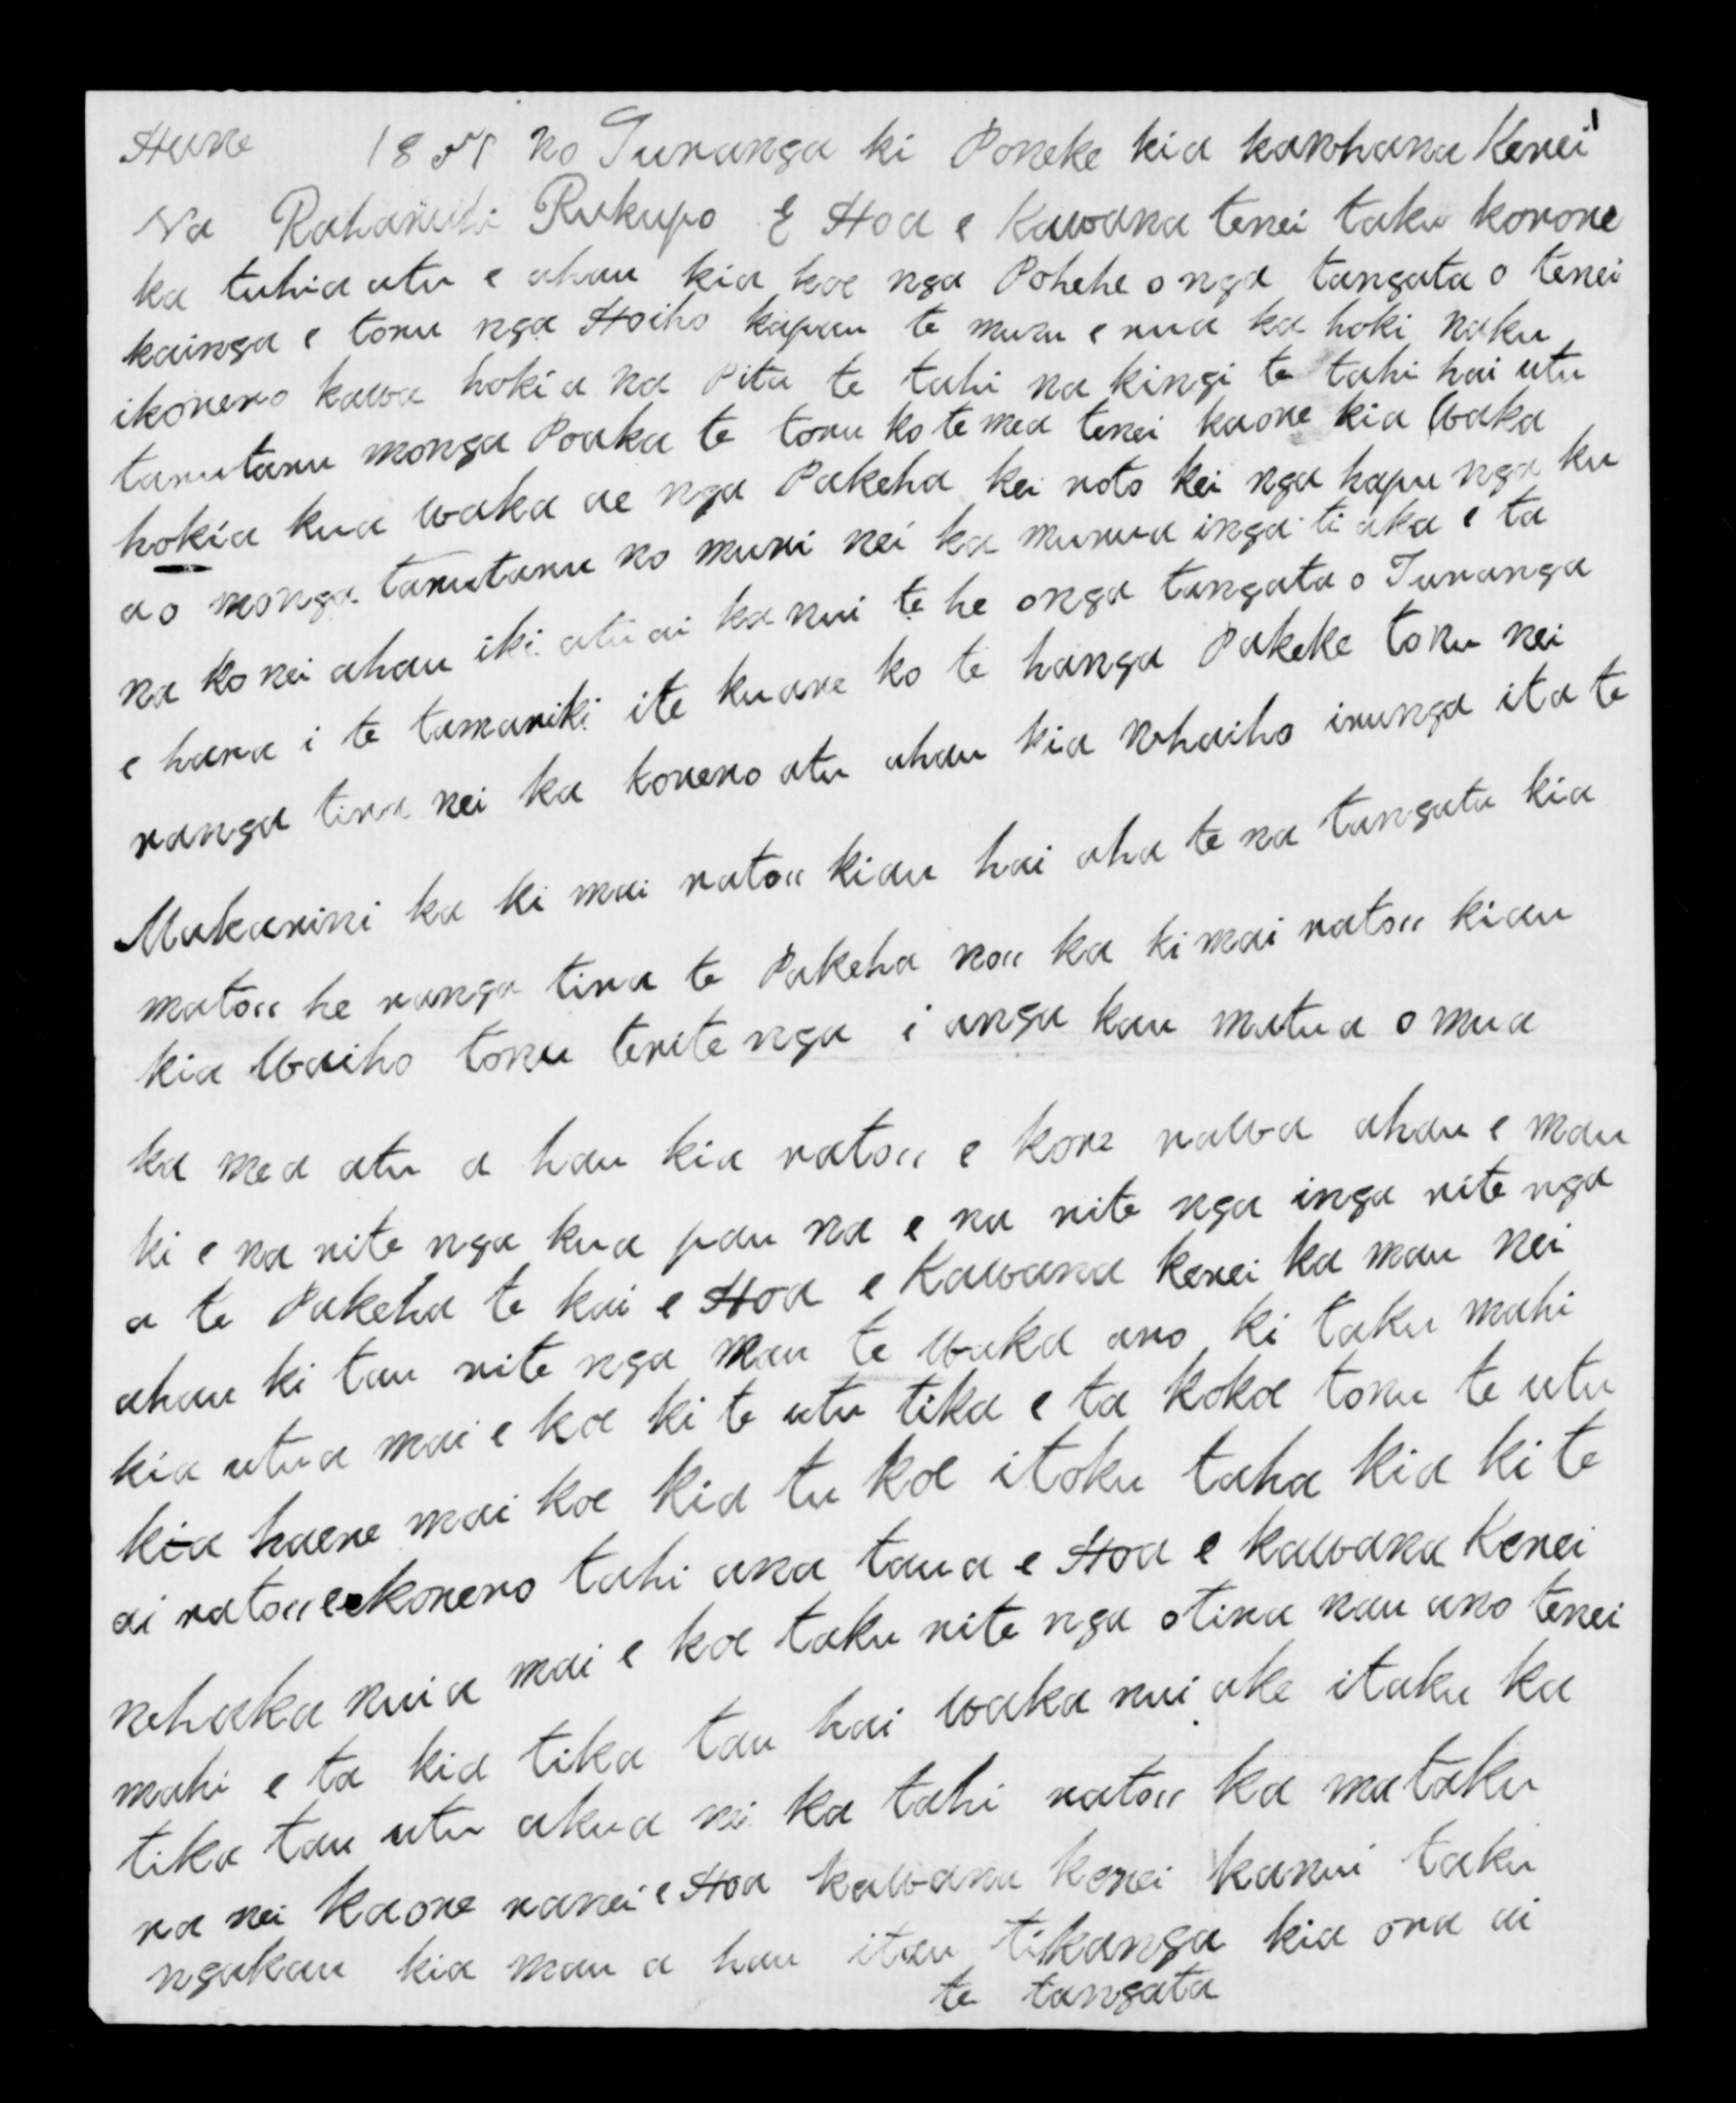 Hune 1851 no Turanga ki Poneke kia kawhana Kerei
Na Raharuhi Rukupo E Hoa e Kawana tenei taku korore
ka tuhia atu e ahau kia koe nga Pohehe o nga tangata o tenei
kainga e toru nga Hoiho kapau te muru e rua ka hoki naku
ikorero kawa hokia na Pita te tahi na kingi te tahi hai utu
tarutaru monga Poaka te toru ko te mea tenei kaore kia Waka
hokia kua waka ae nga Pakeha kei roto kei nga hapu nga ku
ao monga tarutaru no muri nei ka murua inga ti aka e ta
na ko nei ahau iki atu ai ka nui te he onga tangata o Turanga
e hara i te tamariki ite kuare ko te hanga Pakeke tonu nei
ranga tira nei ka korero atu ahau kia Whaiho irunga ita te
Makarini ka ki mai ratou kiau hai aha te na tangata kia
matou he ranga tira te Pakeha nou ka ki mai ratou kiau
kia Waiho tonu terite nga i anga kau matua o mua
ka mea atu a hau kia ratou e kore rawa ahau e mau
ki e na rite nga kua pau na e na rite nga inga rite nga
a te Pakeha te kai e Hoa e Kawana kerei ka mau nei
ahau ki tau rite nga mau te waka aro ki taku mahi
kia utua mai e koe ki te utu tika e ta kokoe tonu te utu
kia haere mai koe kia tu koe itoku taha kia ki te
ai ratou e korero tahi ana taua e Hoa e kawana Kerei
whaka nuia mai e koe taku rite nga otira nau ano tenei
mahi e ta kia tika tau hai waka nui ake itaku ka
tika tau utu akua nei ka tahi ratou ka mataku
ra nei kaore ranei e Hoa kawana kerei kanui taku
ngakau kia mau a hau itau tikanga kia ora ai
te tangata